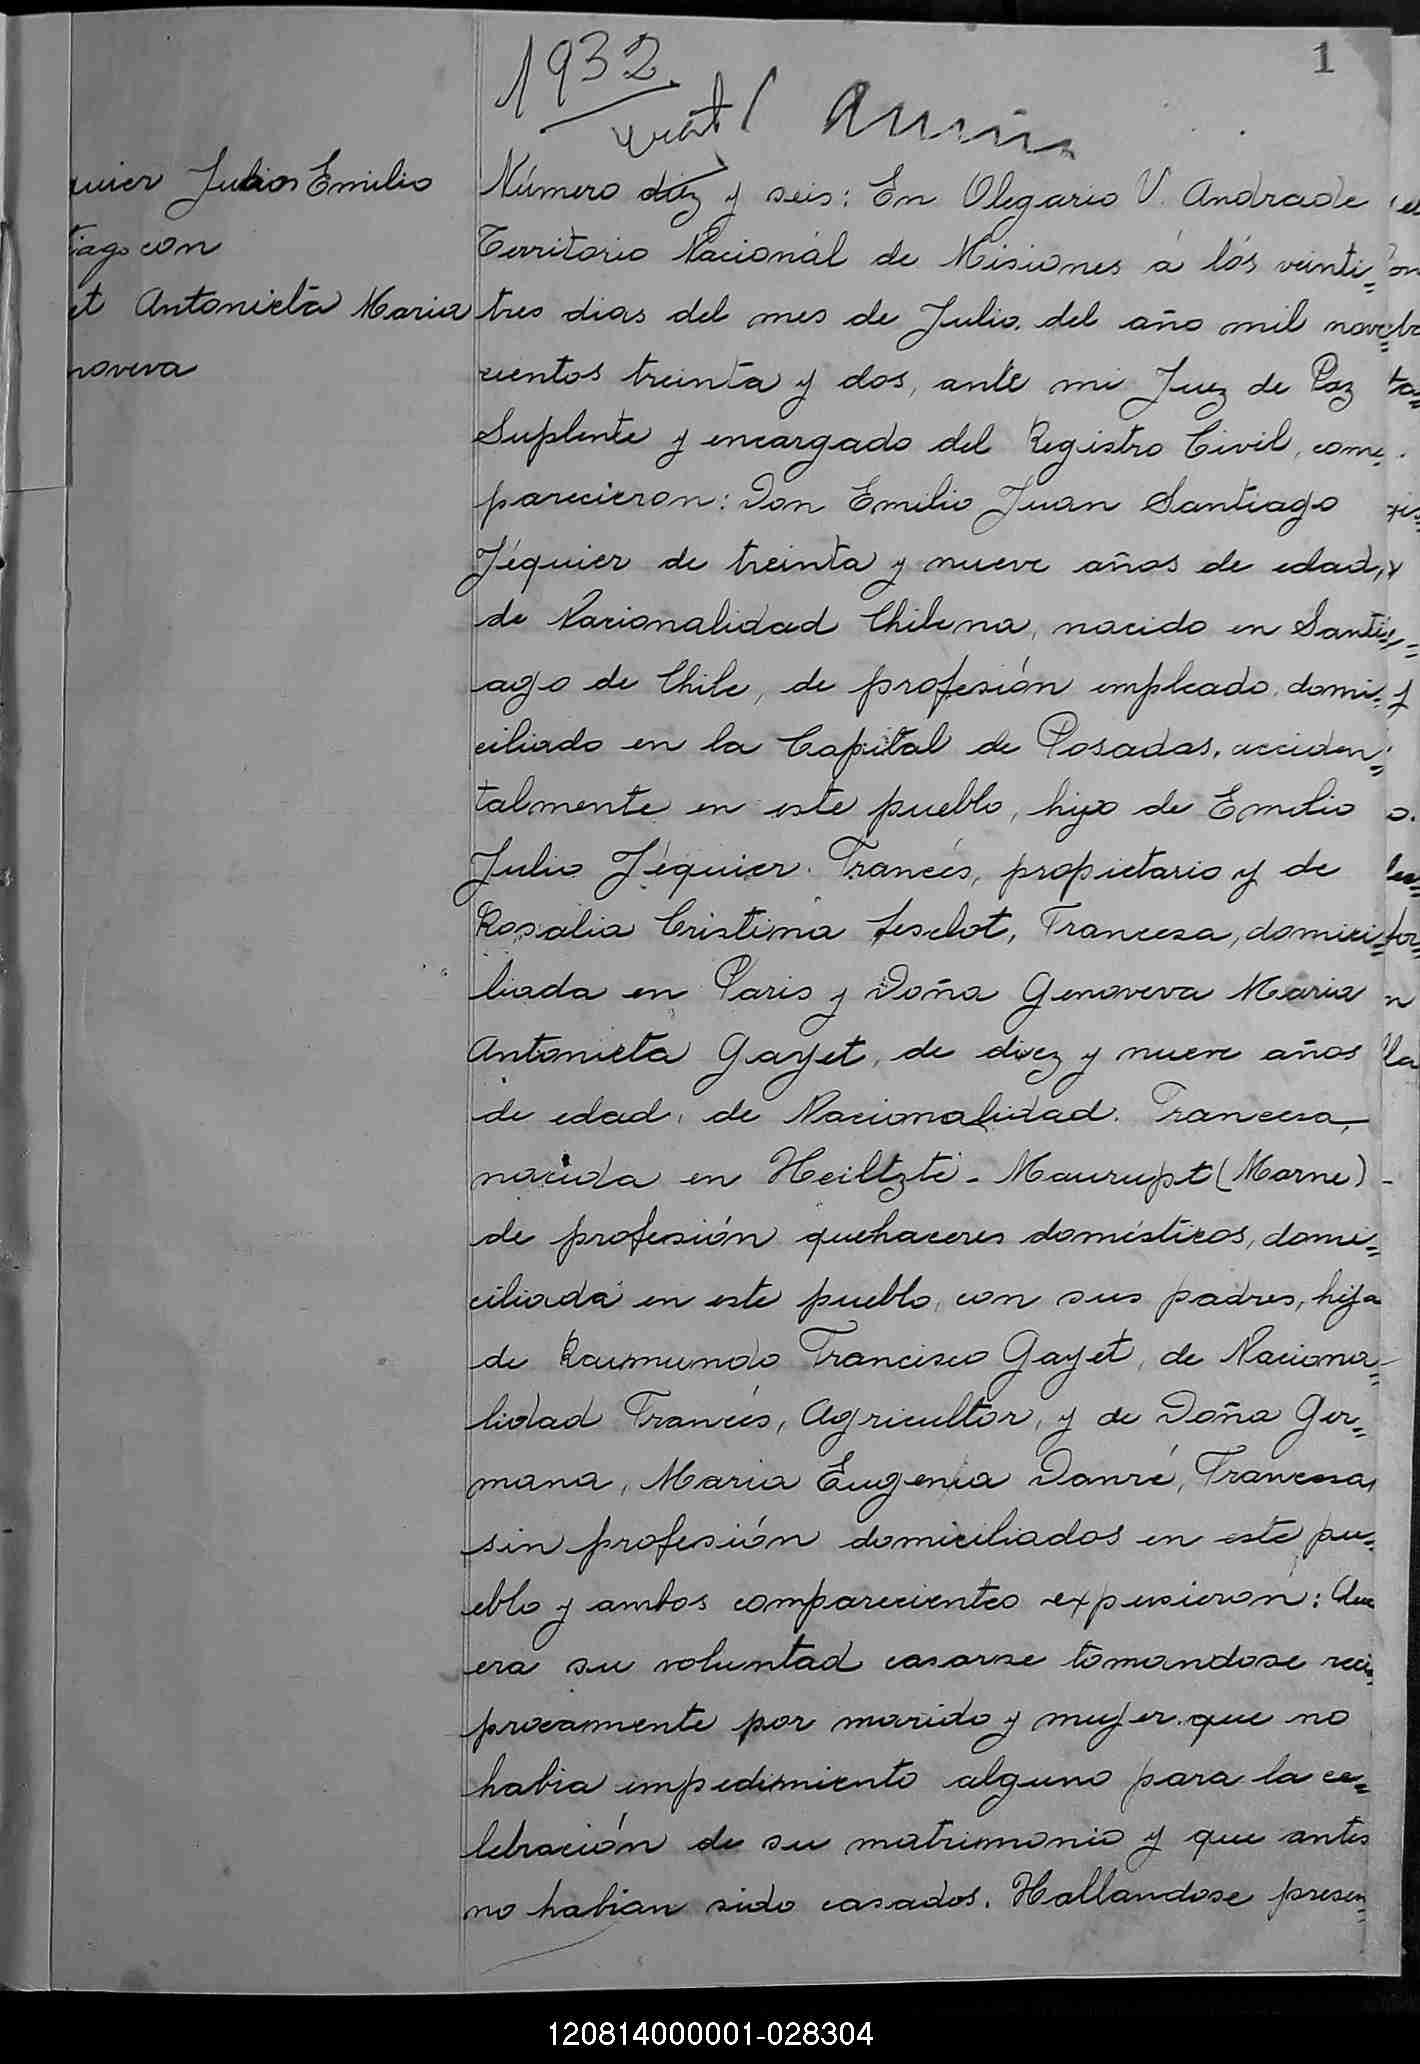 1932
1
quier Julio Emilio
tiago con
et Antonieta Maria
noveva
Número diez y seis: En Olegario V. Andrade
Territorio Nacional de Misiones á los veinti=
tres dias del mes de Julio del año mil nove=
cientos treinta y dos, ante mi Juez de Paz
Suplente y encargado del Registro Civil, com=
parecieron: Don Emilio Juan Santiago
Jéquier de treinta y nueve años de edad,
de Nacionalidad Chilena, nacido en Santi=
ago de Chile, de profesión empleado, domi=
ciliado en la Capital de Posadas, acciden=
talmente en este pueblo, hijo de Emilio
Julio Jéquier. Francés, propietario y de
Rosalia Cristina Lesclot, Francesa, domici=
liada en Paris y Doña Genoveva Maria
Antonieta Gayet, de diez y nueve años
de edad, de Nacionalidad. Francesa,
nacida en Heiltzte - Maurupt (Marne) -
de profesión quehaceres domésticos, domi=
ciliada en este pueblo, con sus padres, hija
de Raimundo Francisco Gayet, de Naciona=
lidad Francés, Agricultor, y de Doña Ger=
mana, Maria Eugenia Danré, Francesa,
sin profesión domiciliados en este pu=
eblo y ambos comparecientes expusieron: Que
era su voluntad casarse tomandose reci=
procamente por marido y mujer que no
habia impedimiento alguno para la ce=
lebración de su matrimonio y que antes
no habian sido casados. Hallandose presen=
120814000001-028304